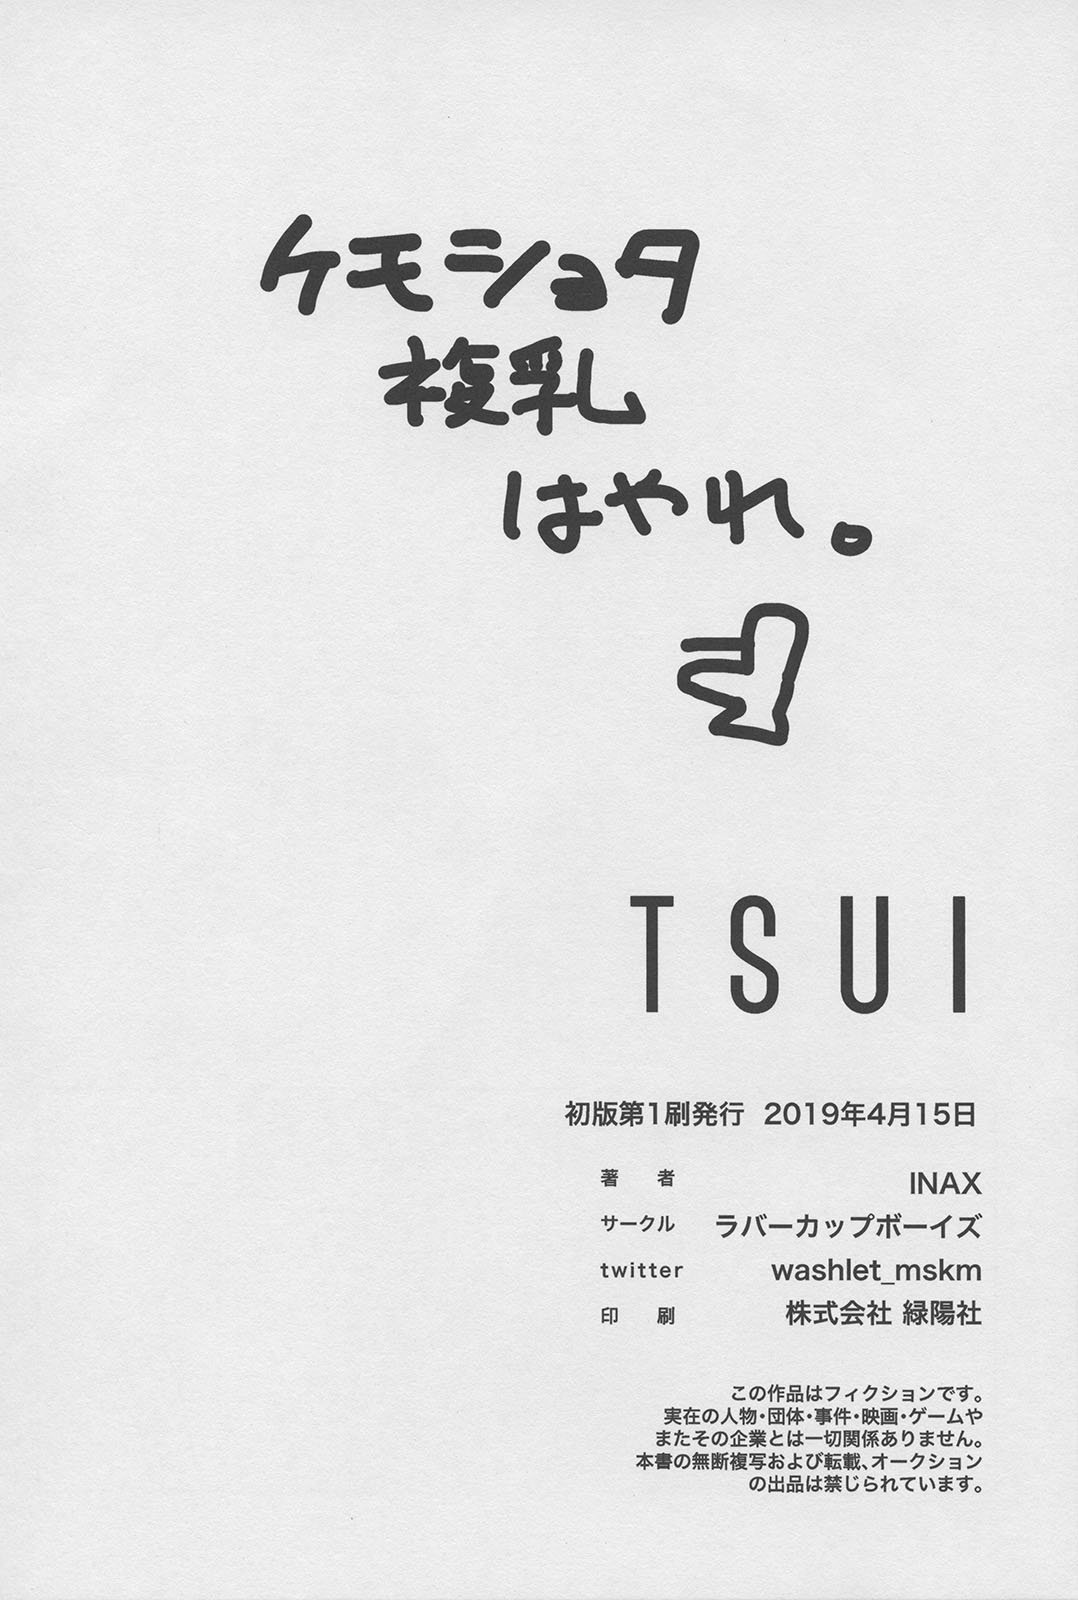 ケモショタ
複乳
はやれ。
TSUI
初版第1刷発行 2019年4月15日
著 者 INAX
サークル ラバーカップボーイズ
twitter washlet_mskm
印 刷 株式会社 緑陽社
この作品はフィクションです。
実在の人物・団体・事件・映画・ゲームや
またその企業とは一切関係ありません。
本書の無断複写および転載、オークション
の出品は禁じられています。